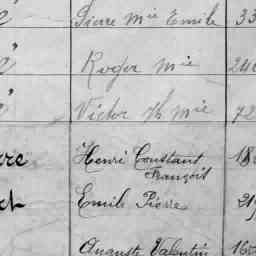 " Pierre Mie Emile 33
" Roger Mie 240
" Victor Th Mie 72
rre Henri Constant 18
François
et Emile Pierre 21
Auguste Valentin 16